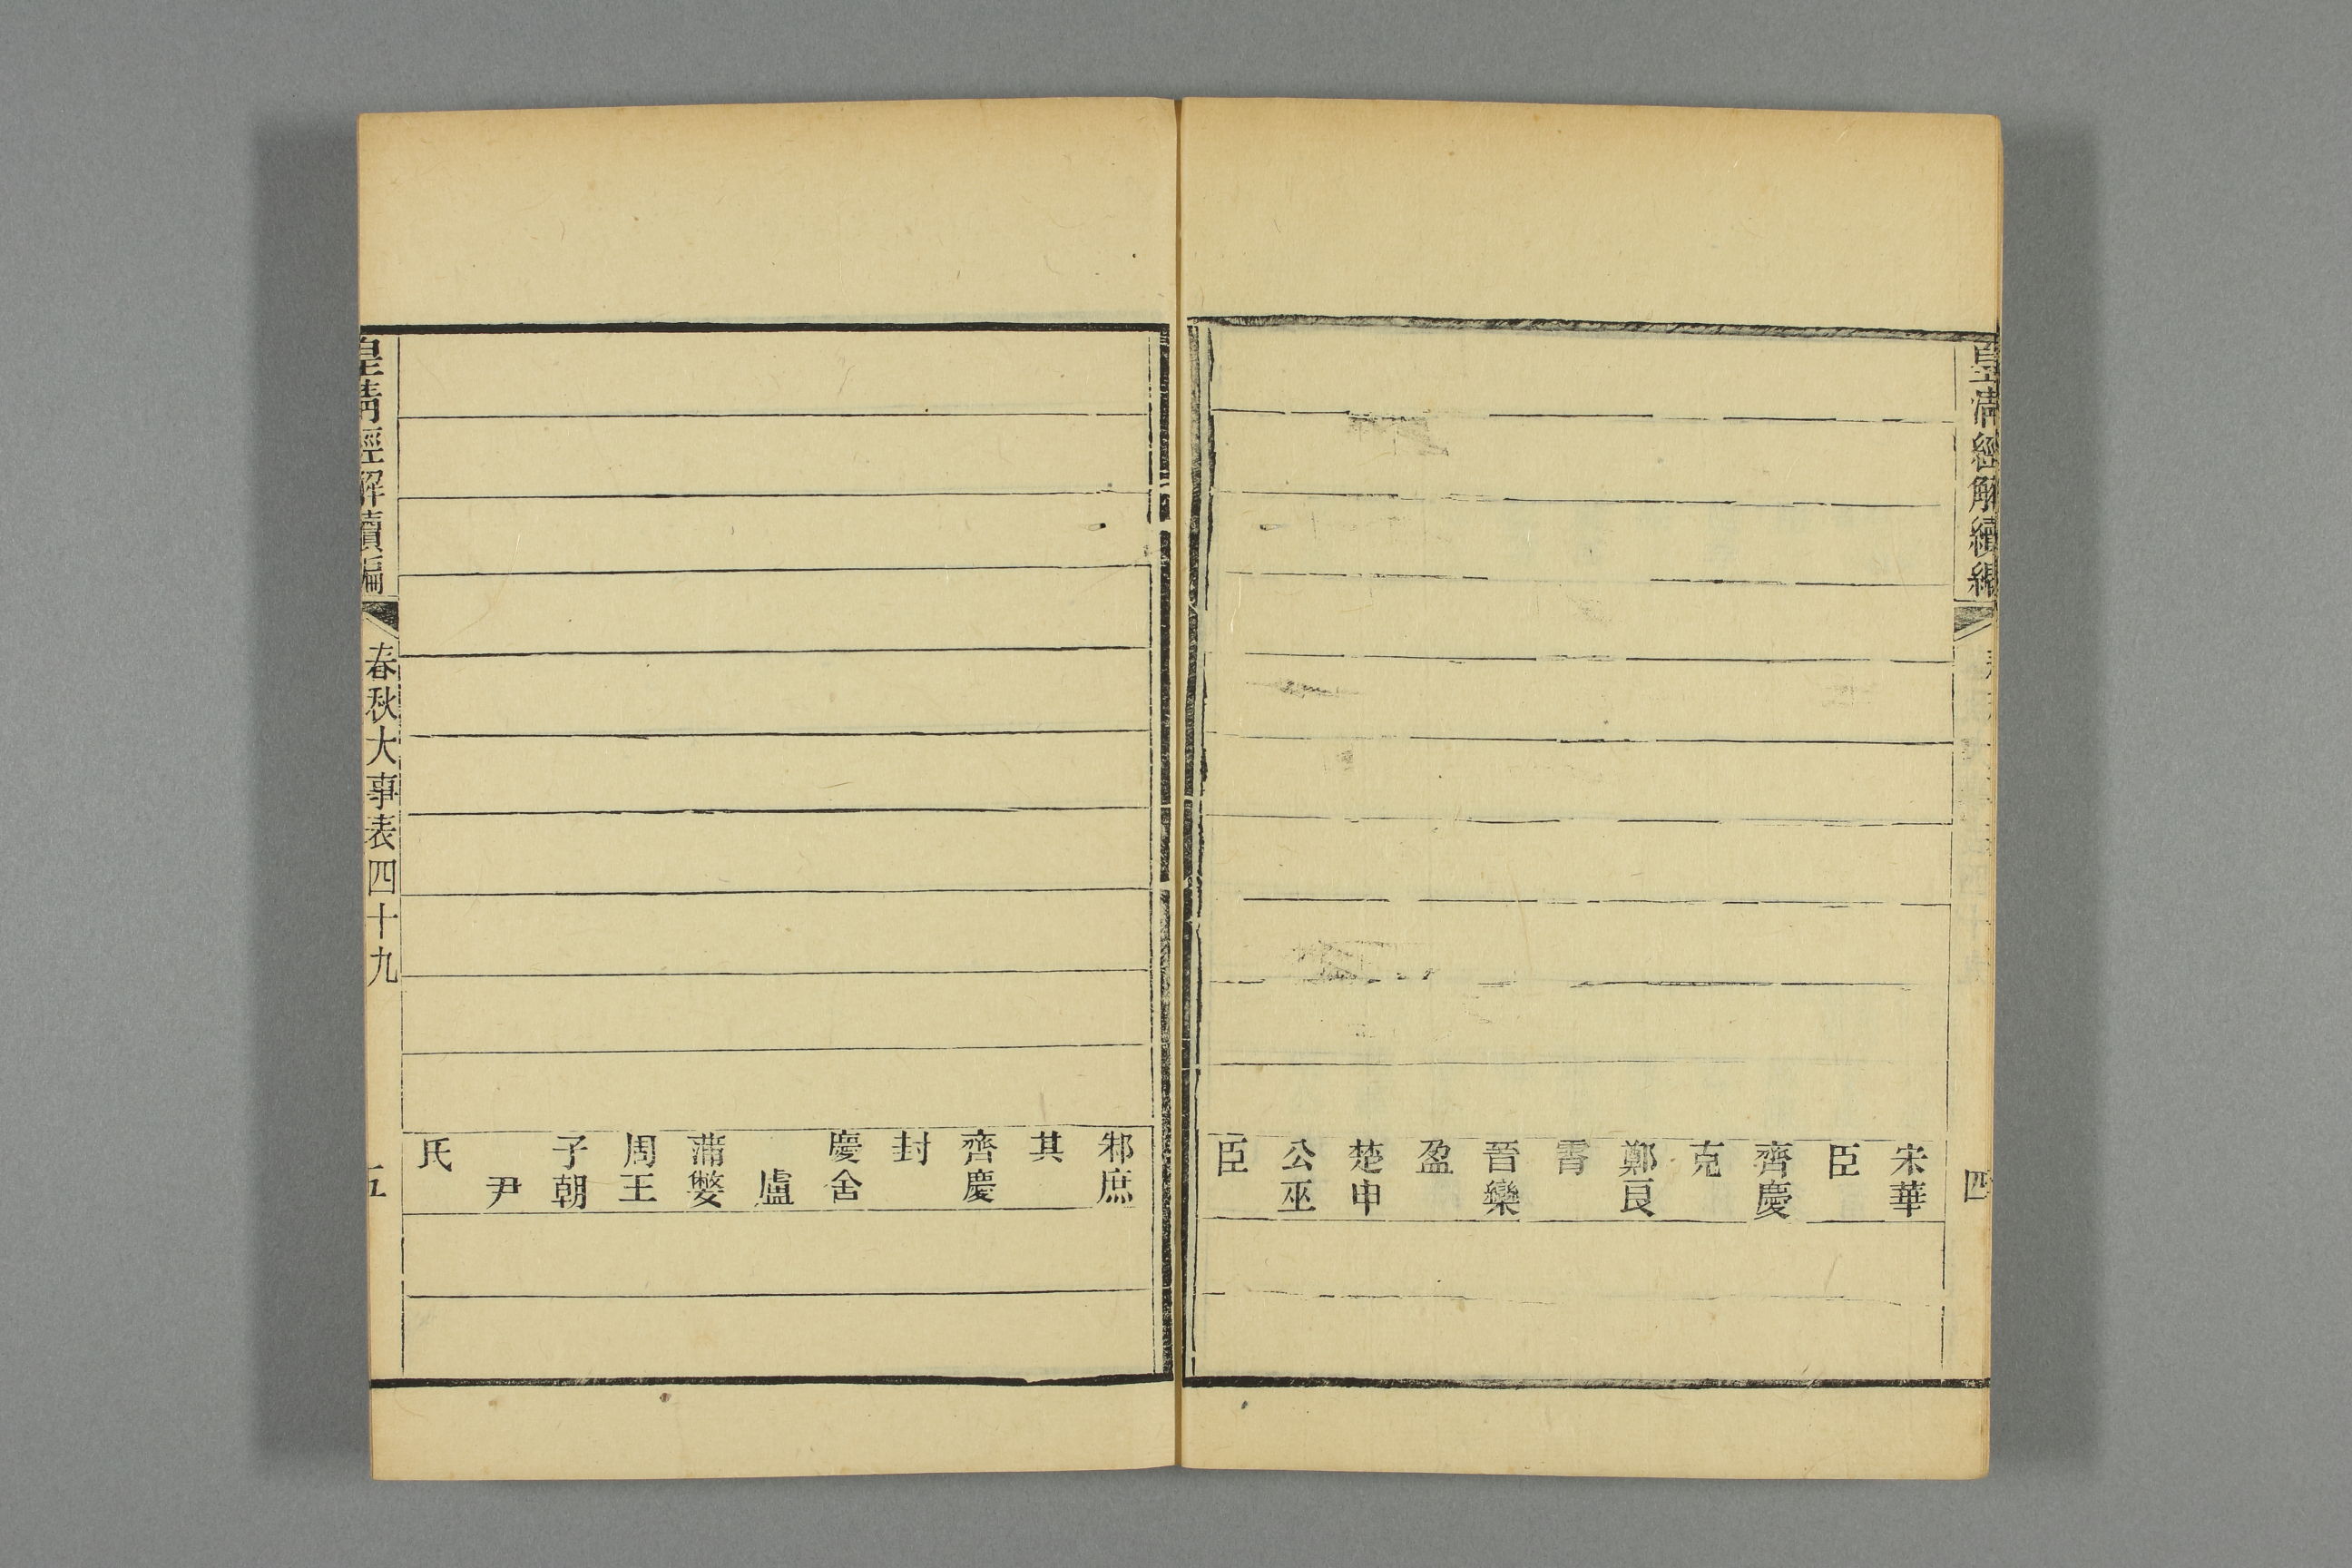 皇清經解續編
四
宋華
臣
齊慶
克
鄭良
霄
晉欒
盈
楚申
公巫
臣
邾庶
其
齊慶
封
慶舍
盧
蒲嫳
周王
子朝
尹
氏
皇清經解續編
春秋大事表四十九
五